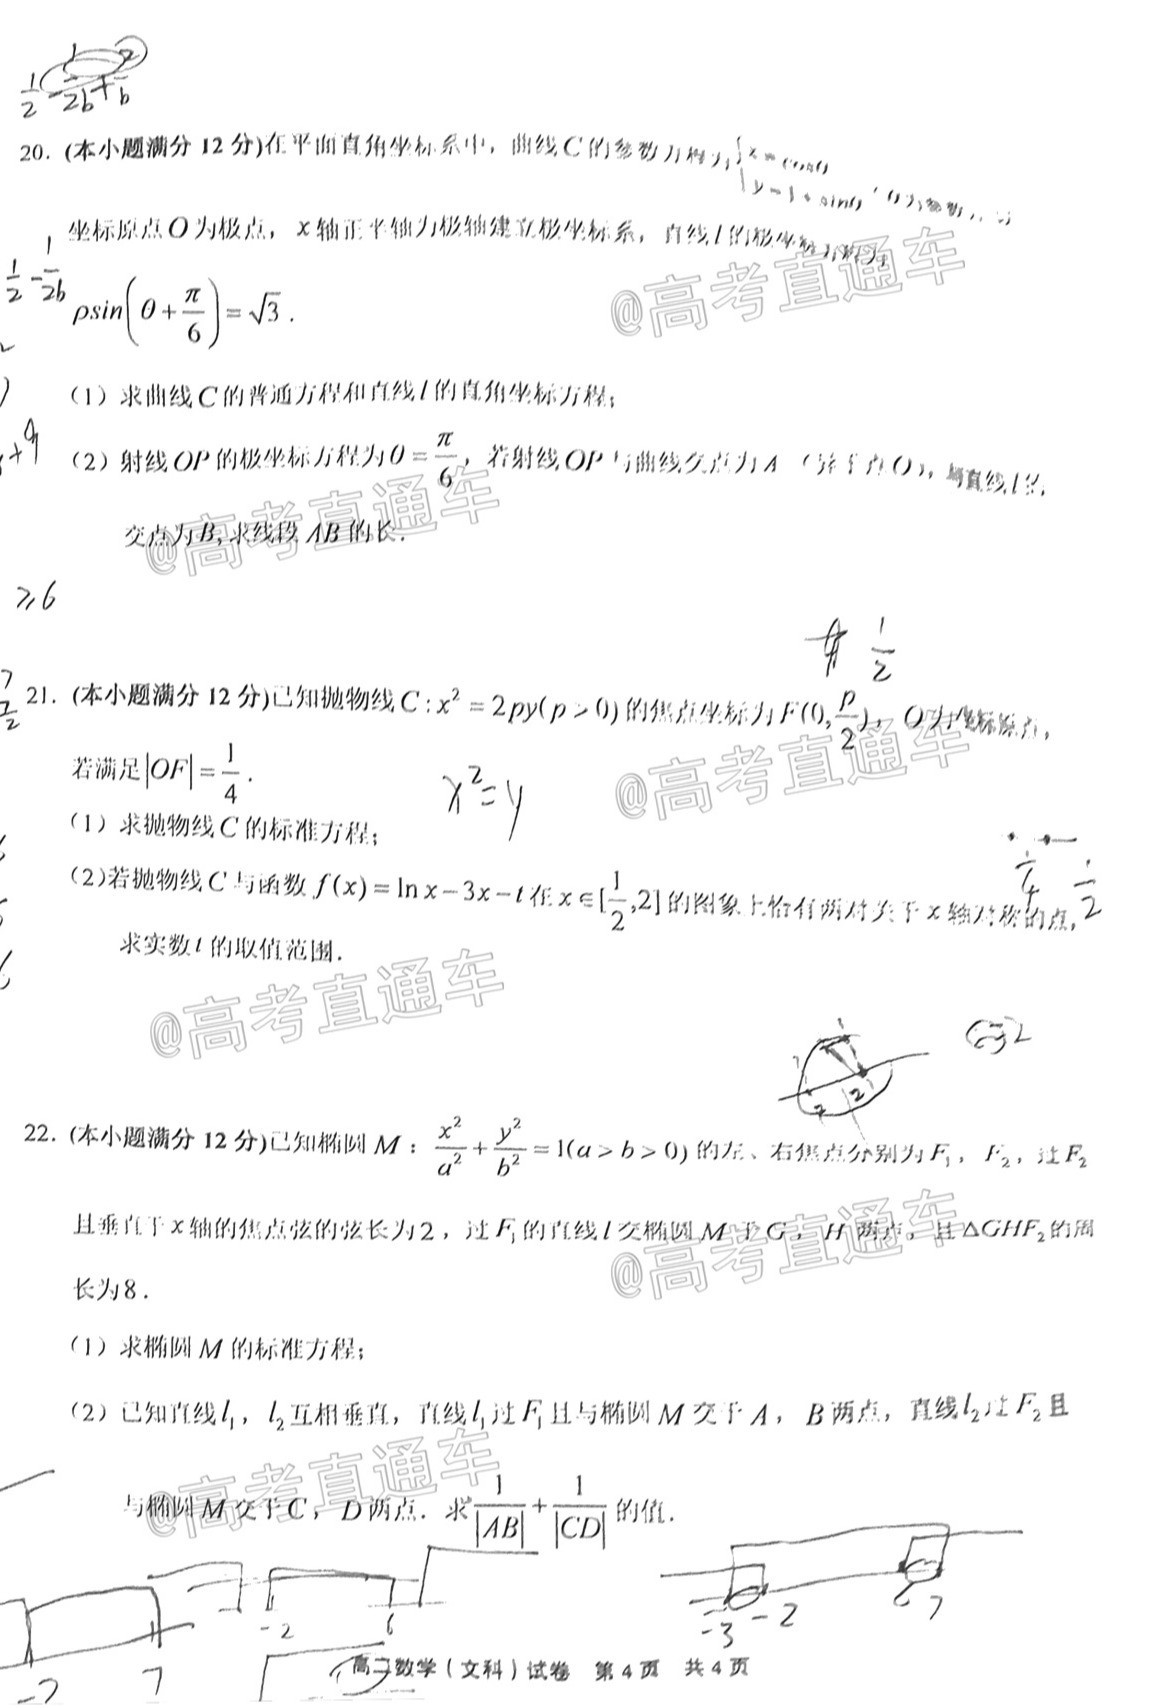 1/2 - 1/2b + 2/b
20. (本小题满分 12 分)在平面直角坐标系中，曲线 C 的参数方程为{x = cosθ
y = 1 + sinθ (θ为参数),以
坐标原点 O 为极点，x 轴正半轴为极轴建立极坐标系，直线 l 的极坐标方程为
1/2 - 1/2b
ρsin(θ + π/6) = √3 .
（1）求曲线 C 的普通方程和直线 l 的直角坐标方程；
（2）射线 OP 的极坐标方程为 θ = π/6，若射线 OP 与曲线交点为 A （异于点 O），与直线 l 的
交点为 B, 求线段 AB 的长.
≥6
1/2
21. (本小题满分 12 分)已知抛物线 C : x² = 2py(p > 0) 的焦点坐标为 F(0, p/2)，O 为坐标原点，
若满足 |OF| = 1/4 .
x²=y
（1）求抛物线 C 的标准方程；
（2)若抛物线 C 与函数 f(x) = ln x − 3x − t 在 x ∈ [1/2, 2] 的图象上恰有两对关于 x 轴对称的点,
1/4 1/2
求实数 t 的取值范围.
22. (本小题满分 12 分)已知椭圆 M : x²/a² + y²/b² = 1(a > b > 0) 的左、右焦点分别为 F₁，F₂，过 F₂
且垂直于 x 轴的焦点弦的弦长为 2，过 F₁ 的直线 l 交椭圆 M 于 G，H 两点，且 △GHF₂ 的周
长为 8 .
（1）求椭圆 M 的标准方程；
（2）已知直线 l₁，l₂ 互相垂直，直线 l₁ 过 F₁ 且与椭圆 M 交于 A，B 两点，直线 l₂ 过 F₂ 且
与椭圆 M 交于 C，D 两点．求 1/|AB| + 1/|CD| 的值.
-2 6
-3 -2 6 7
-2 7
高二数学（文科）试卷 第 4 页 共 4 页
@高考直通车
@高考直通车
@高考直通车
@高考直通车
@高考直通车
@高考直通车